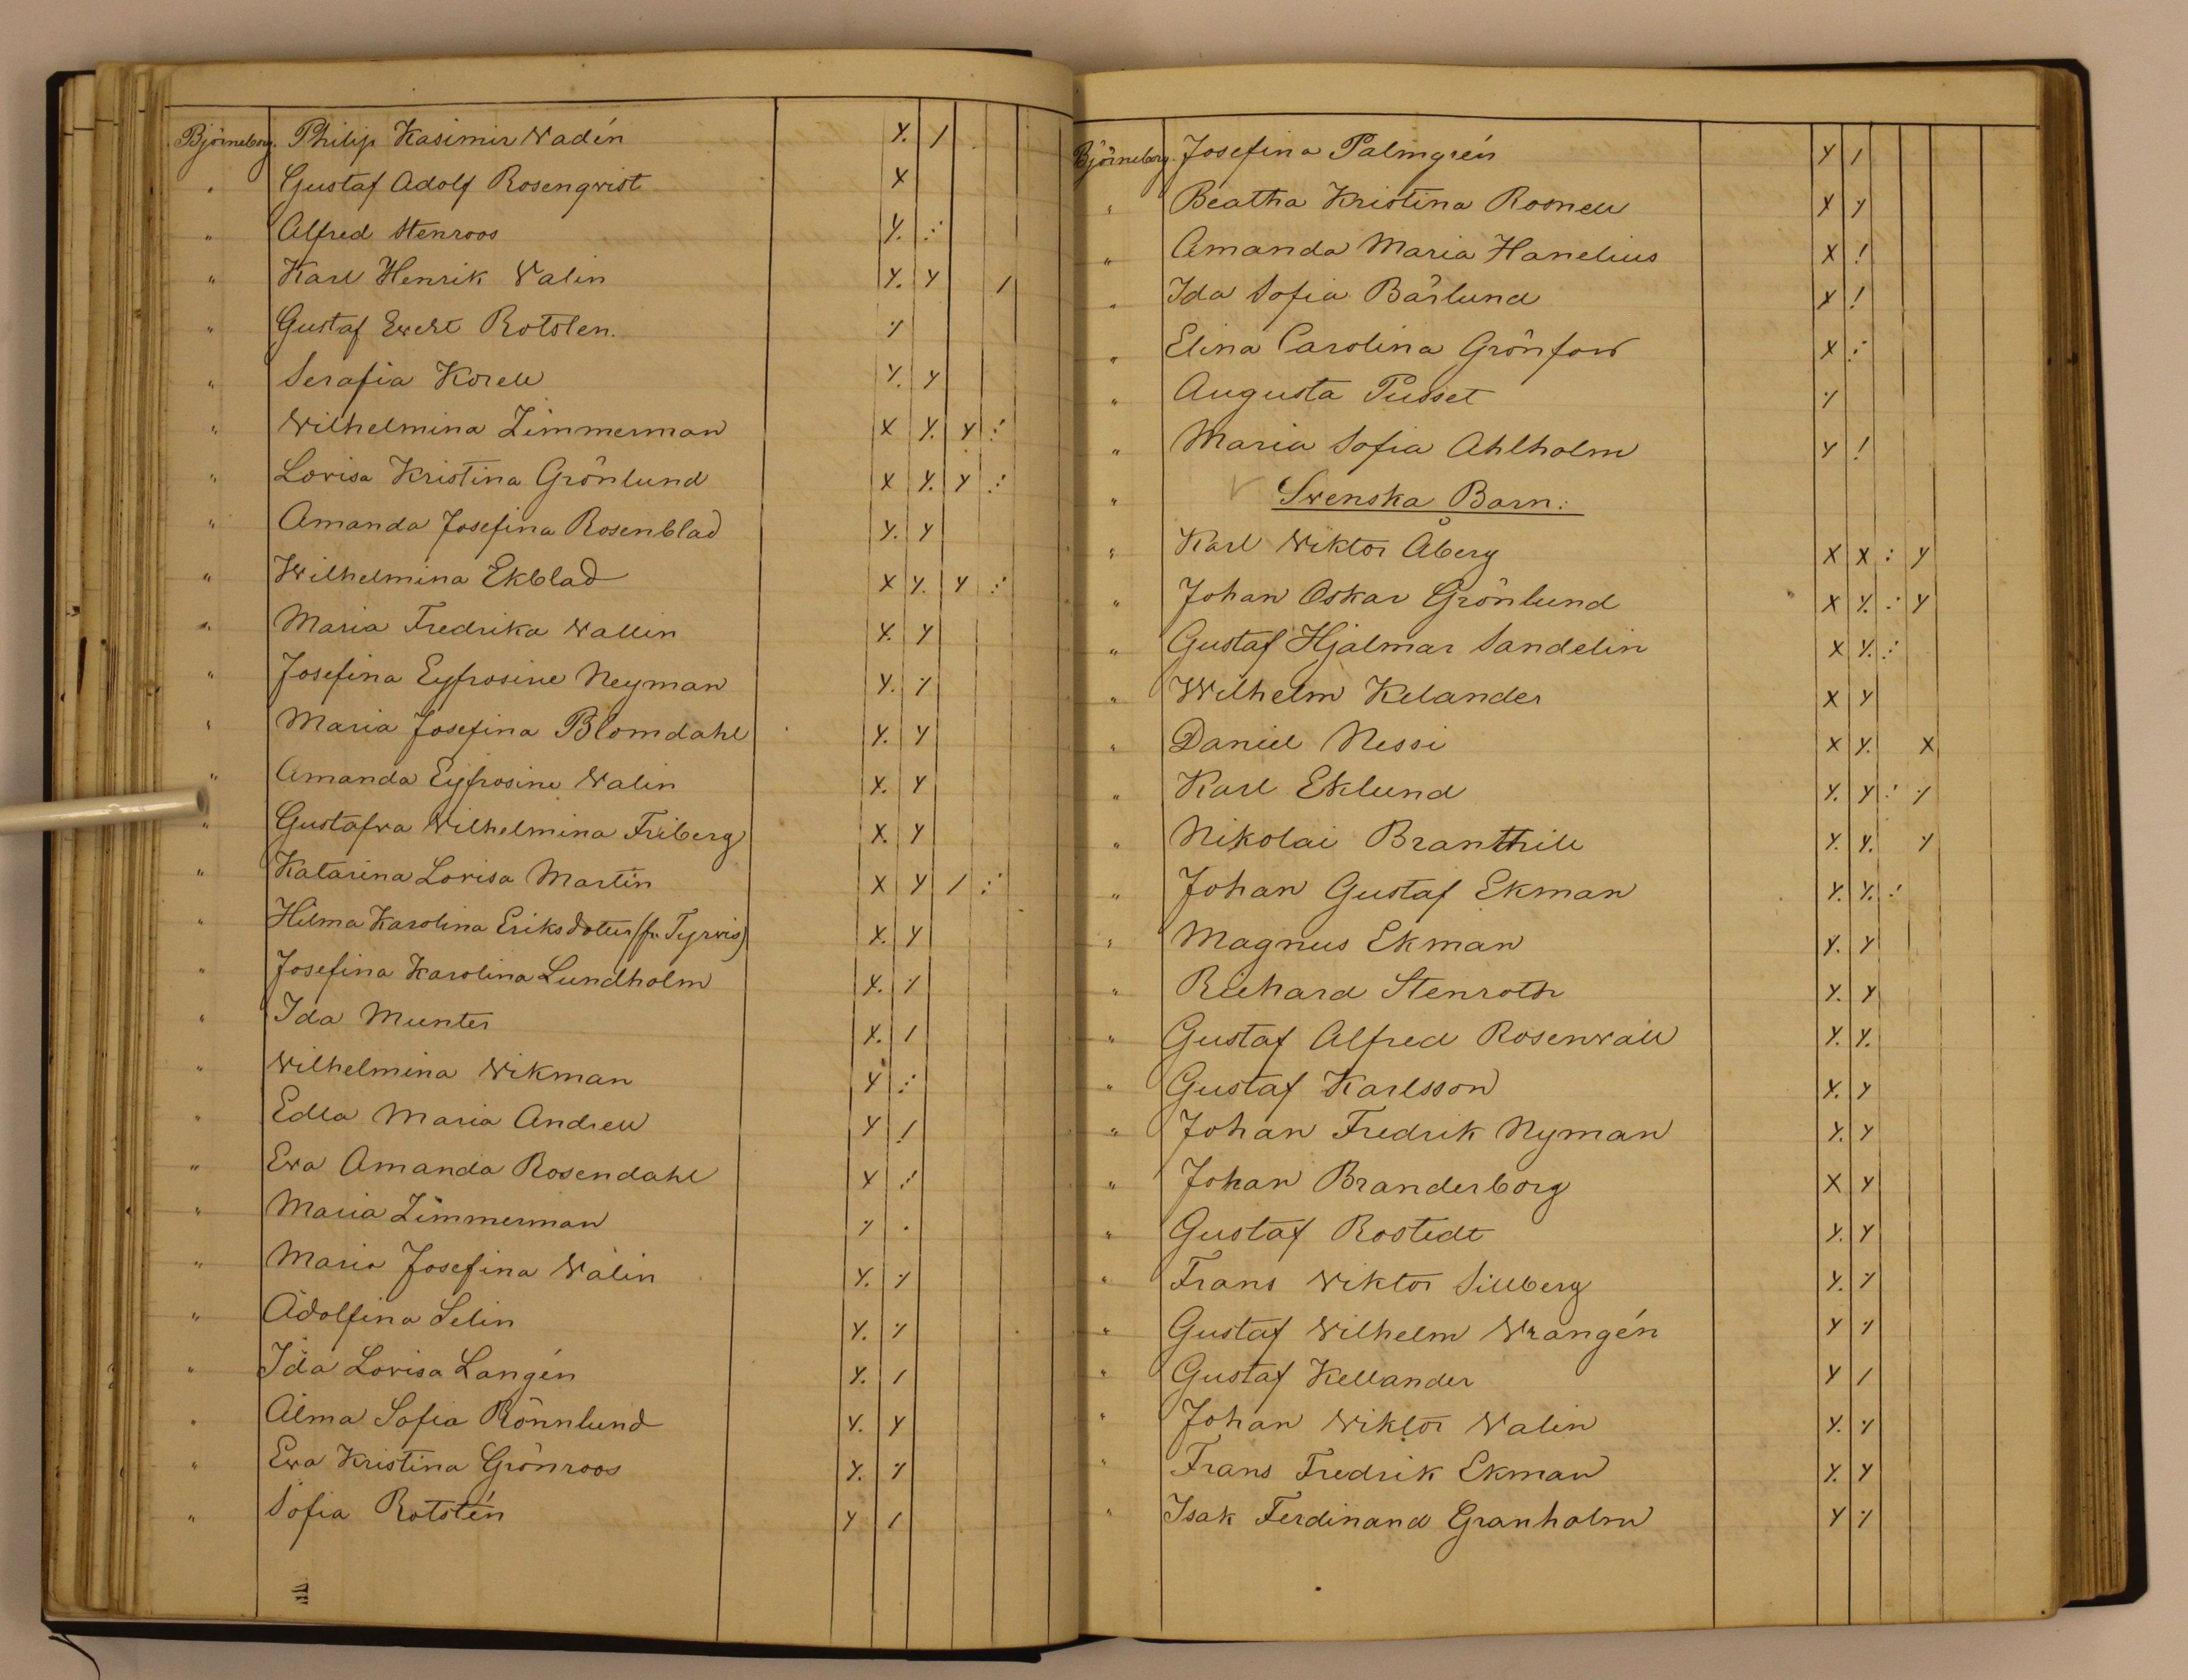 Björneborg. Philip Kasimir Wadén Y. /
" Gustaf Adolf Rosenqvist X
" Alfred Stenroos Y. ⋰
" Karl Henrik Walin Y. Y /
" Gustaf Evert Rotsten. ·/·
" Serafia Korell Y. Y
" Wilhelmina Zimmerman X Y. Y ⋰
" Lovisa Kristina Grönlund X Y. Y ⋰
" Amanda Josefina Rosenblad Y. Y
" Wilhelmina Ekblad X Y. Y ⋰
" Maria Fredrika Wallin Y. Y
" Josefina Eyfrosine Neyman Y. ·/·
" Maria Josefina Blomdahl Y. Y
" Amanda Eyfrosine Walin X. Y
" Gustafva Wilhelmina Friberg X. Y
" Katarina Lovisa Martin X Y / ⋰
" Hilma Karolina Eriksdotter (fr. Tyrvis) X. Y
" Josefina Karolina Lundholm X. ·/·
" Ida Munter X. /
" Wilhelmina Wikman Y ⋰
" Edla Maria Andrell Y !
" Eva Amanda Rosendahl Y ⋰
" Maria Zimmerman ·/· .
" Maria Josefina Walin Y. ·/·
" Adolfina Selin Y. ·/·
" Ida Lovisa Langén Y. /
" Alma Sofia Rönnlund Y. Y
" Eva Kristina Grönroos Y. ·/·
" Sofia Rotstén Y /
Björneborg. Josefina Palmgrén Y /
" Beatha Kristina Rosnell X ·/·
" Amanda Maria Hanelius X !
" Ida Sofia Bärlund X !
" Elina Carolina Grönfors X ⋰
" Augusta Pusset ·/·
" Maria Sofia Ahlholm Y !
" Svenska Barn:
" Karl Wiktor Åberg X X : Y
" Johan Oskar Grönlund X Y. ⋰ Y
" Gustaf Hjalmar Sandelin X Y. ⋰
" Wilhelm Kelander X Y
" Daniel Nessi X Y. X
" Karl Eklund Y. Y ⋰ ·/·
" Nikolai Branthill Y. Y. Y
" Johan Gustaf Ekman Y. Y. ⋰
" Magnus Ekman Y. Y
" Richard Stenroth Y. Y
" Gustaf Alfred Rosenvall Y. Y.
" Gustaf Karlsson Y. Y
" Johan Fredrik Nyman Y. Y
" Johan Branderborg X Y
" Gustaf Rostedt Y. Y
" Frans Wiktor Sillberg Y. ·/·
" Gustaf Wilhelm Wrangén Y ·/·
" Gustaf Kellander Y /
" Johan Wiktor Walin Y. ·/·
" Frans Fredrik Ekman Y. Y
" Isak Ferdinand Granholm Y ·/·